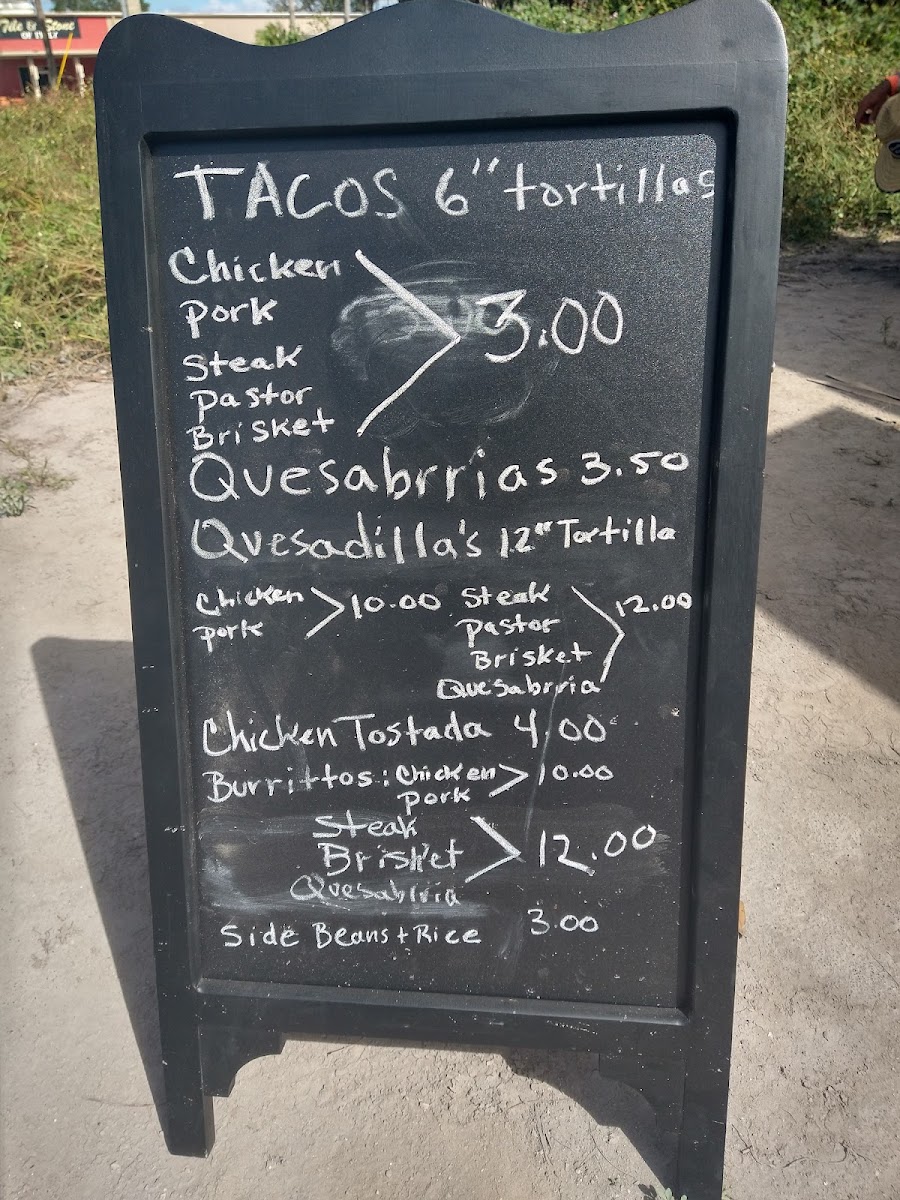 Tile & Stone
OF ITALY
TACOS 6" tortillas
Chicken
pork
Steak
pastor
Brisket
3.00
Quesabrrias 3.50
Quesadilla's 12" Tortilla
Chicken
pork
10.00
Steak
pastor
Brisket
Quesabrria
12.00
Chicken Tostada 4.00
Burrittos: Chicken
pork
10.00
Steak
Brisket
Quesabrria
12.00
Side Beans + Rice 3.00